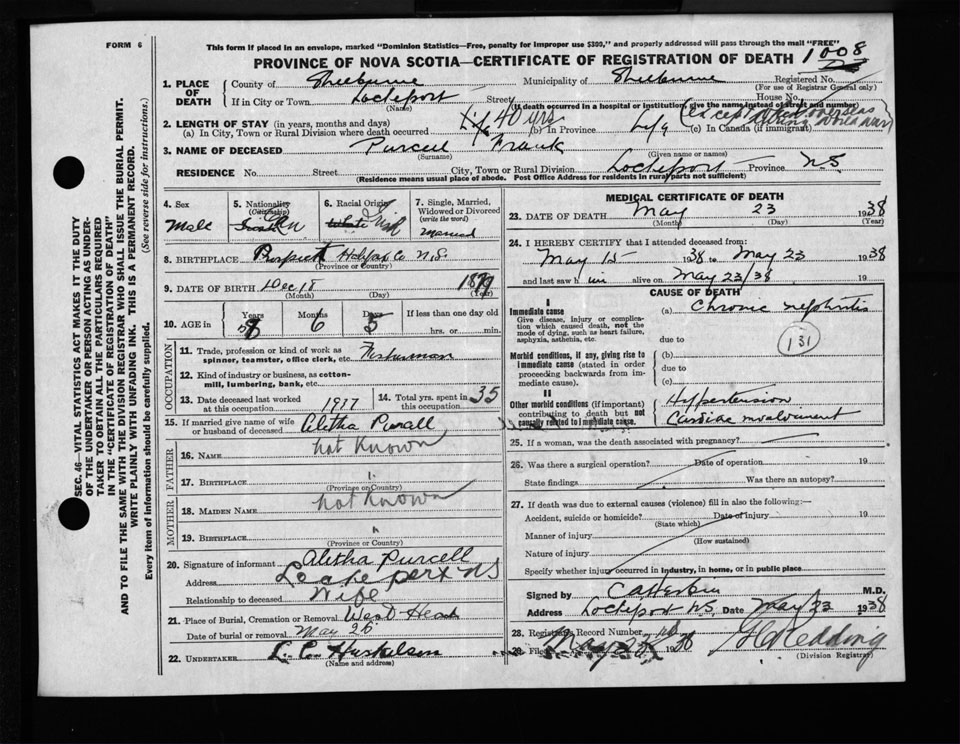 FORM 6
This form if placed in an envelope, marked "Dominion Statistics—Free, penalty for improper use $300," and properly addressed will pass through the mail "FREE"
PROVINCE OF NOVA SCOTIA—CERTIFICATE OF REGISTRATION OF DEATH 1008
1. PLACE OF DEATH
County of Shelburne Municipality of Shelburne Registered No.
(For use of Registrar General only)
If in City or Town Lockeport Street House No.
(Name) (If death occurred in a hospital or institution, give the name instead of street and number)
2. LENGTH OF STAY (in years, months and days)
(a) In City, Town or Rural Division where death occurred 40 yrs (b) In Province Life (c) In Canada (if immigrant) (except when overseas during World War)
3. NAME OF DECEASED Purcell Frank
(Surname) (Given name or names)
RESIDENCE No. Street City, Town or Rural Division Lockeport Province N.S.
(Residence means usual place of abode. Post Office Address for residents in rural parts not sufficient)
4. Sex
Male
5. Nationality
(Citizenship)
Can
6. Racial Origin
7. Single, Married, Widowed or Divorced
(write the word)
Married
8. BIRTHPLACE Prospect Halifax Co N.S.
(Province or Country)
9. DATE OF BIRTH Dec 18 1879
(Month) (Day) (Year)
10. AGE in
Years Months Days If less than one day old
58 6 5 hrs. or min.
OCCUPATION
11. Trade, profession or kind of work as spinner, teamster, office clerk, etc. Fisherman
12. Kind of industry or business, as cotton-mill, lumbering, bank, etc.
13. Date deceased last worked at this occupation 1937
14. Total yrs. spent in this occupation 35
15. If married give name of wife or husband of deceased Alitha Purcell
FATHER
16. NAME not Known
17. BIRTHPLACE "
(Province or Country)
MOTHER
18. MAIDEN NAME not Known
19. BIRTHPLACE "
(Province or Country)
20. Signature of informant Alitha Purcell
Address Lockeport NS
Relationship to deceased Wife
21. Place of Burial, Cremation or Removal West Head
Date of burial or removal May 26
22. UNDERTAKER L. C.
(Name and address)
MEDICAL CERTIFICATE OF DEATH
23. DATE OF DEATH May 23 1938
(Month) (Day) (Year)
24. I HEREBY CERTIFY that I attended deceased from:
May 15 1938 to May 23 1938
and last saw him alive on May 23/38 19
CAUSE OF DEATH
I
Immediate cause
Give disease, injury or complication which caused death, not the mode of dying, such as heart failure, asphyxia, asthenia, etc.
(a) Chronic nephritis
due to
131
Morbid conditions, if any, giving rise to immediate cause (stated in order proceeding backwards from immediate cause).
(b)
due to
(c)
II
Other morbid conditions (if important) contributing to death but not causally related to immediate cause.
Hypertension
Cardiac involvement
25. If a woman, was the death associated with pregnancy?
26. Was there a surgical operation? Date of operation 19
State findings Was there an autopsy?
27. If death was due to external causes (violence) fill in also the following:—
Accident, suicide or homicide? Date of injury 19
(State which)
Manner of injury
(How sustained)
Nature of injury
Specify whether injury occurred in industry, in home, or in public place
Signed by M.D.
Address Lockeport N.S. Date May 23 1938
28. Registrar's Record Number
29. Filed May
Redding
(Division Registrar)
SEC. 46—VITAL STATISTICS ACT MAKES IT THE DUTY OF THE UNDERTAKER OR PERSON ACTING AS UNDERTAKER TO OBTAIN ALL THE PARTICULARS REQUIRED IN THE "CERTIFICATE OF REGISTRATION OF DEATH" AND TO FILE THE SAME WITH THE DIVISION REGISTRAR WHO SHALL ISSUE THE BURIAL PERMIT.
WRITE PLAINLY WITH UNFADING INK. THIS IS A PERMANENT RECORD.
Every item of information should be carefully supplied. (See reverse side for instructions.)